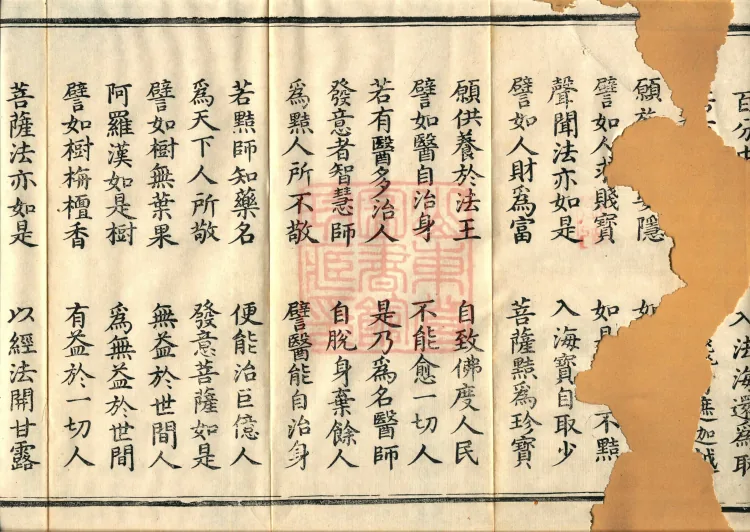 百分 入法海還爲取
遮迦越
願 隱 如
譬如人求賤寶 如是 不黠
聲聞法亦如是 入海寶自取少
譬如人財爲富 菩薩黠爲珍寶
願供養於法王 自致佛度人民
譬如醫自治身 不能愈一切人
若有醫多治人 是乃爲名醫師
發意者智慧師 自脫身棄餘人
爲黠人所不敬 譬醫能自治身
若黠師知藥名 便能治巨億人
爲天下人所敬 發意菩薩如是
譬如樹無葉果 無益於世間人
阿羅漢如是樹 爲無益於世間
譬如樹栴檀香 有益於一切人
菩薩法亦如是 以經法開甘露